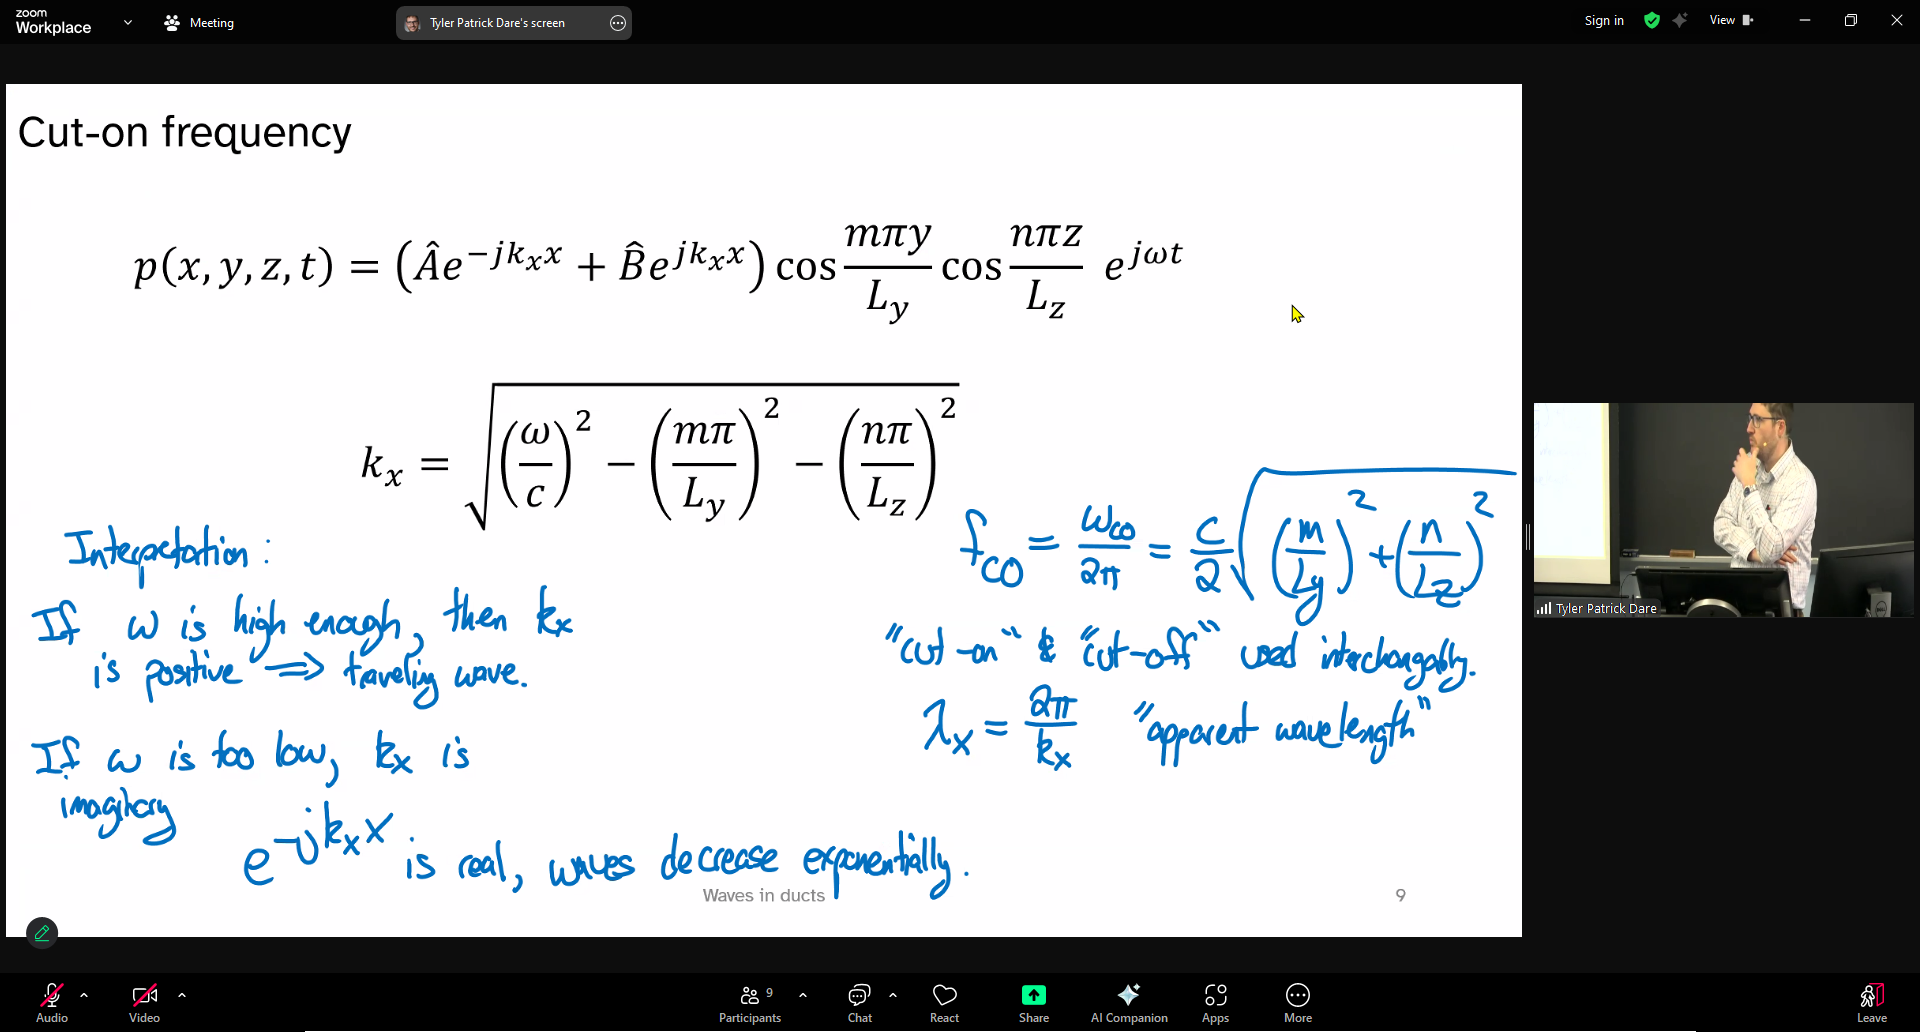 zoom
Workplace
Meeting
Tyler Patrick Dare's screen
Sign in
View
Cut-on frequency
p(x, y, z, t) = (Âe^{-jk_x x} + B̂e^{jk_x x}) cos \frac{mπy}{L_y} cos \frac{nπz}{L_z} e^{jωt}
k_x = \sqrt{(\frac{ω}{c})^2 − (\frac{mπ}{L_y})^2 − (\frac{nπ}{L_z})^2}
Interpretation:
If ω is high enough, then k_x
is positive ⟹ traveling wave.
If ω is too low, k_x is
imaginary
e^{-jk_x x} is real, waves decrease exponentially.
f_{co} = \frac{ω_{co}}{2π} = \frac{c}{2} \sqrt{(\frac{m}{L_y})^2 + (\frac{n}{L_z})^2}
"cut-on" & "cut-off" used interchangably.
λ_x = \frac{2π}{k_x} "apparent wavelength"
Waves in ducts
9
Tyler Patrick Dare
DELL
Audio
Video
Participants
9
Chat
React
Share
AI Companion
Apps
More
Leave